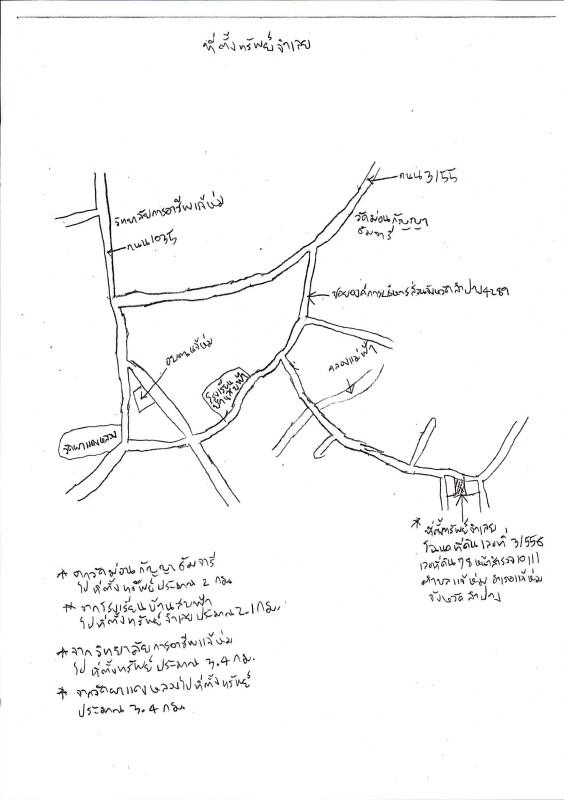 ที่ตั้งทรัพย์จำเลย
ถนน 3155
วิทยาลัยการอาชีพแจ้ห่ม
วัดม่อนกัญญา
ธัมจารี
ถนน 1035
ซอยองค์การบริหารส่วนจังหวัดลำปาง 4289
อบต.แจ้ห่ม
คลองแม่ฟ้า
โรงเรียน
บ้านสบฟ้า
วัดผาแดงหลวง
* ที่ตั้งทรัพย์จำเลย
โฉนดที่ดินเลขที่ 31556
เลขที่ดิน 78 หน้าสำรวจ 10111
ตำบลแจ้ห่ม อำเภอแจ้ห่ม
จังหวัดลำปาง
* จากวัดม่อนกัญญาธัมจารี
ไปที่ตั้งทรัพย์ประมาณ 2 กม
* จากโรงเรียนบ้านสบฟ้า
ไปที่ตั้งทรัพย์จำเลยประมาณ 2.1 กม.
* จากวิทยาลัยการอาชีพแจ้ห่ม
ไปที่ตั้งทรัพย์ประมาณ 3.4 กม.
* จากวัดผาแดงหลวงไปที่ตั้งทรัพย์
ประมาณ 3.4 กม.